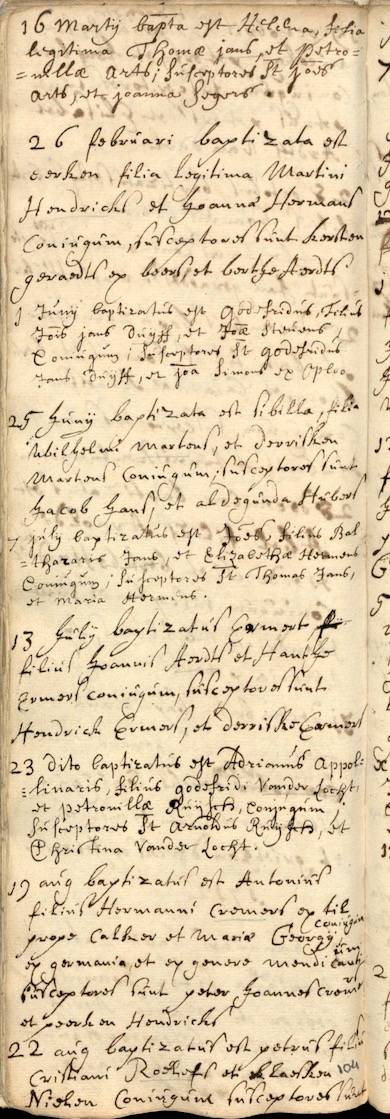 16 Martij bapta est Helena, filia
legitima Thomæ Jans, et Petro=
=nillæ Arts; susceptores st Joes
Arts, et Joanna Segers.
26 februari baptizata est
eerken filia legitima Martini
Hendricks et Joanna Hermans
Coniugum, susceptores sunt kersten
geraedts ex beers, et berthe Aerdts
1 Junij baptizatus est Godefridus, filius
Jois Jans Duijff, et Joæ Stevens,
Coniugum; susceptores st godefridus
Jans Duijff, et Joa Simons ex Oploo
25 Junij baptizata est sibilla, filia
Wilhelmi Martens, et derrisken
Martens Coniugum, susceptores sunt
Jacob Jans, et aldegunda Hubers
7 July baptizatus est Joes filius Bal=
=thazaris Jans, et Elizabethæ Hermens
Coniugum; susceptores st Thomas Jans,
et Maria Hermens.
13 Julij baptizatus Ermert
filius Joannis Aerdts et Hanske
Ermers coniugum, susceptores sunt
Hendrick Ermers, et derriske Ermers
23 dito baptizatus est Adrianus Appol=
=linaris, filius godefridi Vander Locht,
et petronillæ Ruijsch, Coniugum,
susceptores st Arnoldus Ruijsch, et
Christina Vander Locht.
19 aug baptizatus est Antonius
filius Hermanni Cremers ex til
prope Calker et Mariæ Georgij coniugum
ex germania, et ex genere mendicantium
susceptores sunt peter Joannes Cremers
et peerken Hendricks
22 aug baptizatus est petrus filius
Cristiani Roelefs et klaesken 104
Niesen Coniugum susceptores sunt